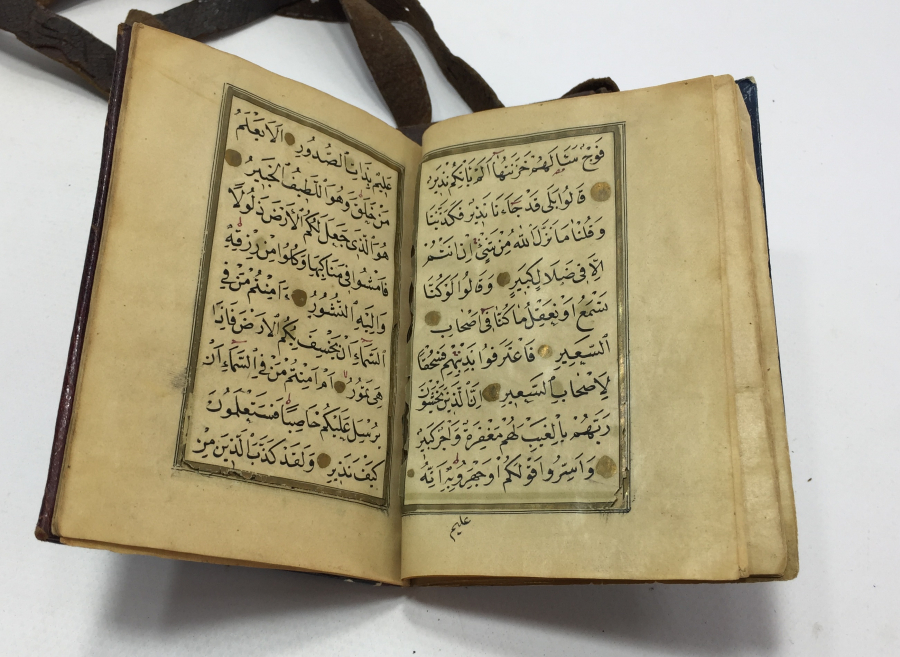 فَوْجٌ سَاَلَهُمْ خَزَنَتُهَا اَلَمْ يَاْتِكُمْ نَذِيرٌ
قَالُوا بَلٰى قَدْ جَاءَنَا نَذِيرٌ فَكَذَّبْنَا
وَقُلْنَا مَا نَزَّلَ اللهُ مِنْ شَىْءٍ اِنْ اَنْتُمْ
اِلَّا فِى ضَلَالٍ كَبِيرٍ وَقَالُوا لَوْ كُنَّا
نَسْمَعُ اَوْ نَعْقِلُ مَا كُنَّا فِى اَصْحَابِ
السَّعِيرِ فَاعْتَرَفُوا بِذَنْبِهِمْ فَسُحْقًا
لِاَصْحَابِ السَّعِيرِ اِنَّ الَّذِينَ يَخْشَوْنَ
رَبَّهُمْ بِالْغَيْبِ لَهُمْ مَغْفِرَةٌ وَاَجْرٌ كَبِيرٌ
وَاَسِرُّوا قَوْلَكُمْ اَوِ اجْهَرُوا بِهِ اِنَّهُ
عليم
عَلِيمٌ بِذَاتِ الصُّدُورِ اَلَا يَعْلَمُ
مَنْ خَلَقَ وَهُوَ اللَّطِيفُ الْخَبِيرُ
هُوَ الَّذِى جَعَلَ لَكُمُ الْاَرْضَ ذَلُولًا
فَامْشُوا فِى مَنَاكِبِهَا وَكُلُوا مِنْ رِزْقِهِ
وَاِلَيْهِ النُّشُورُ ءَاَمِنْتُمْ مَنْ فِى
السَّمَاءِ اَنْ يَخْسِفَ بِكُمُ الْاَرْضَ فَاِذَا
هِىَ تَمُورُ اَمْ اَمِنْتُمْ مَنْ فِى السَّمَاءِ اَنْ
يُرْسِلَ عَلَيْكُمْ حَاصِبًا فَسَتَعْلَمُونَ
كَيْفَ نَذِيرِ وَلَقَدْ كَذَّبَ الَّذِينَ مِنْ